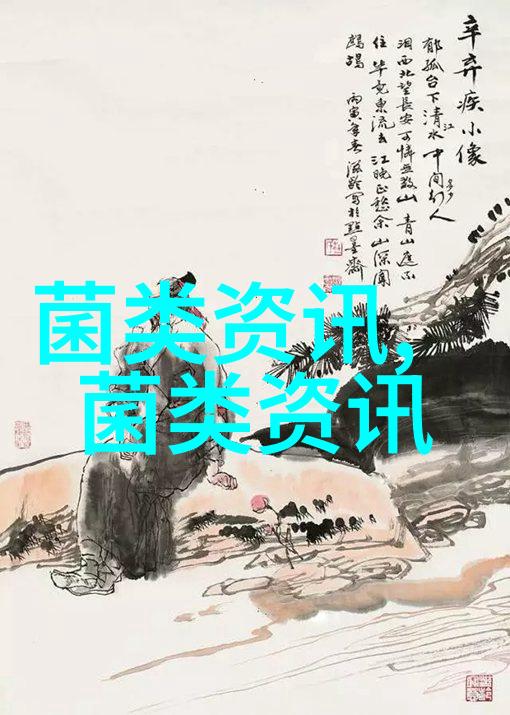 辛弃疾小像
郁孤台下清江水 中间多少行人
泪西北望長安可憐無数山 青山遮不
住 毕竟東流去 江晚正愁余 山深闻
鹧鸪 丙寅年春 滋龄写於點墨齋
菌类资讯,
菌类资讯